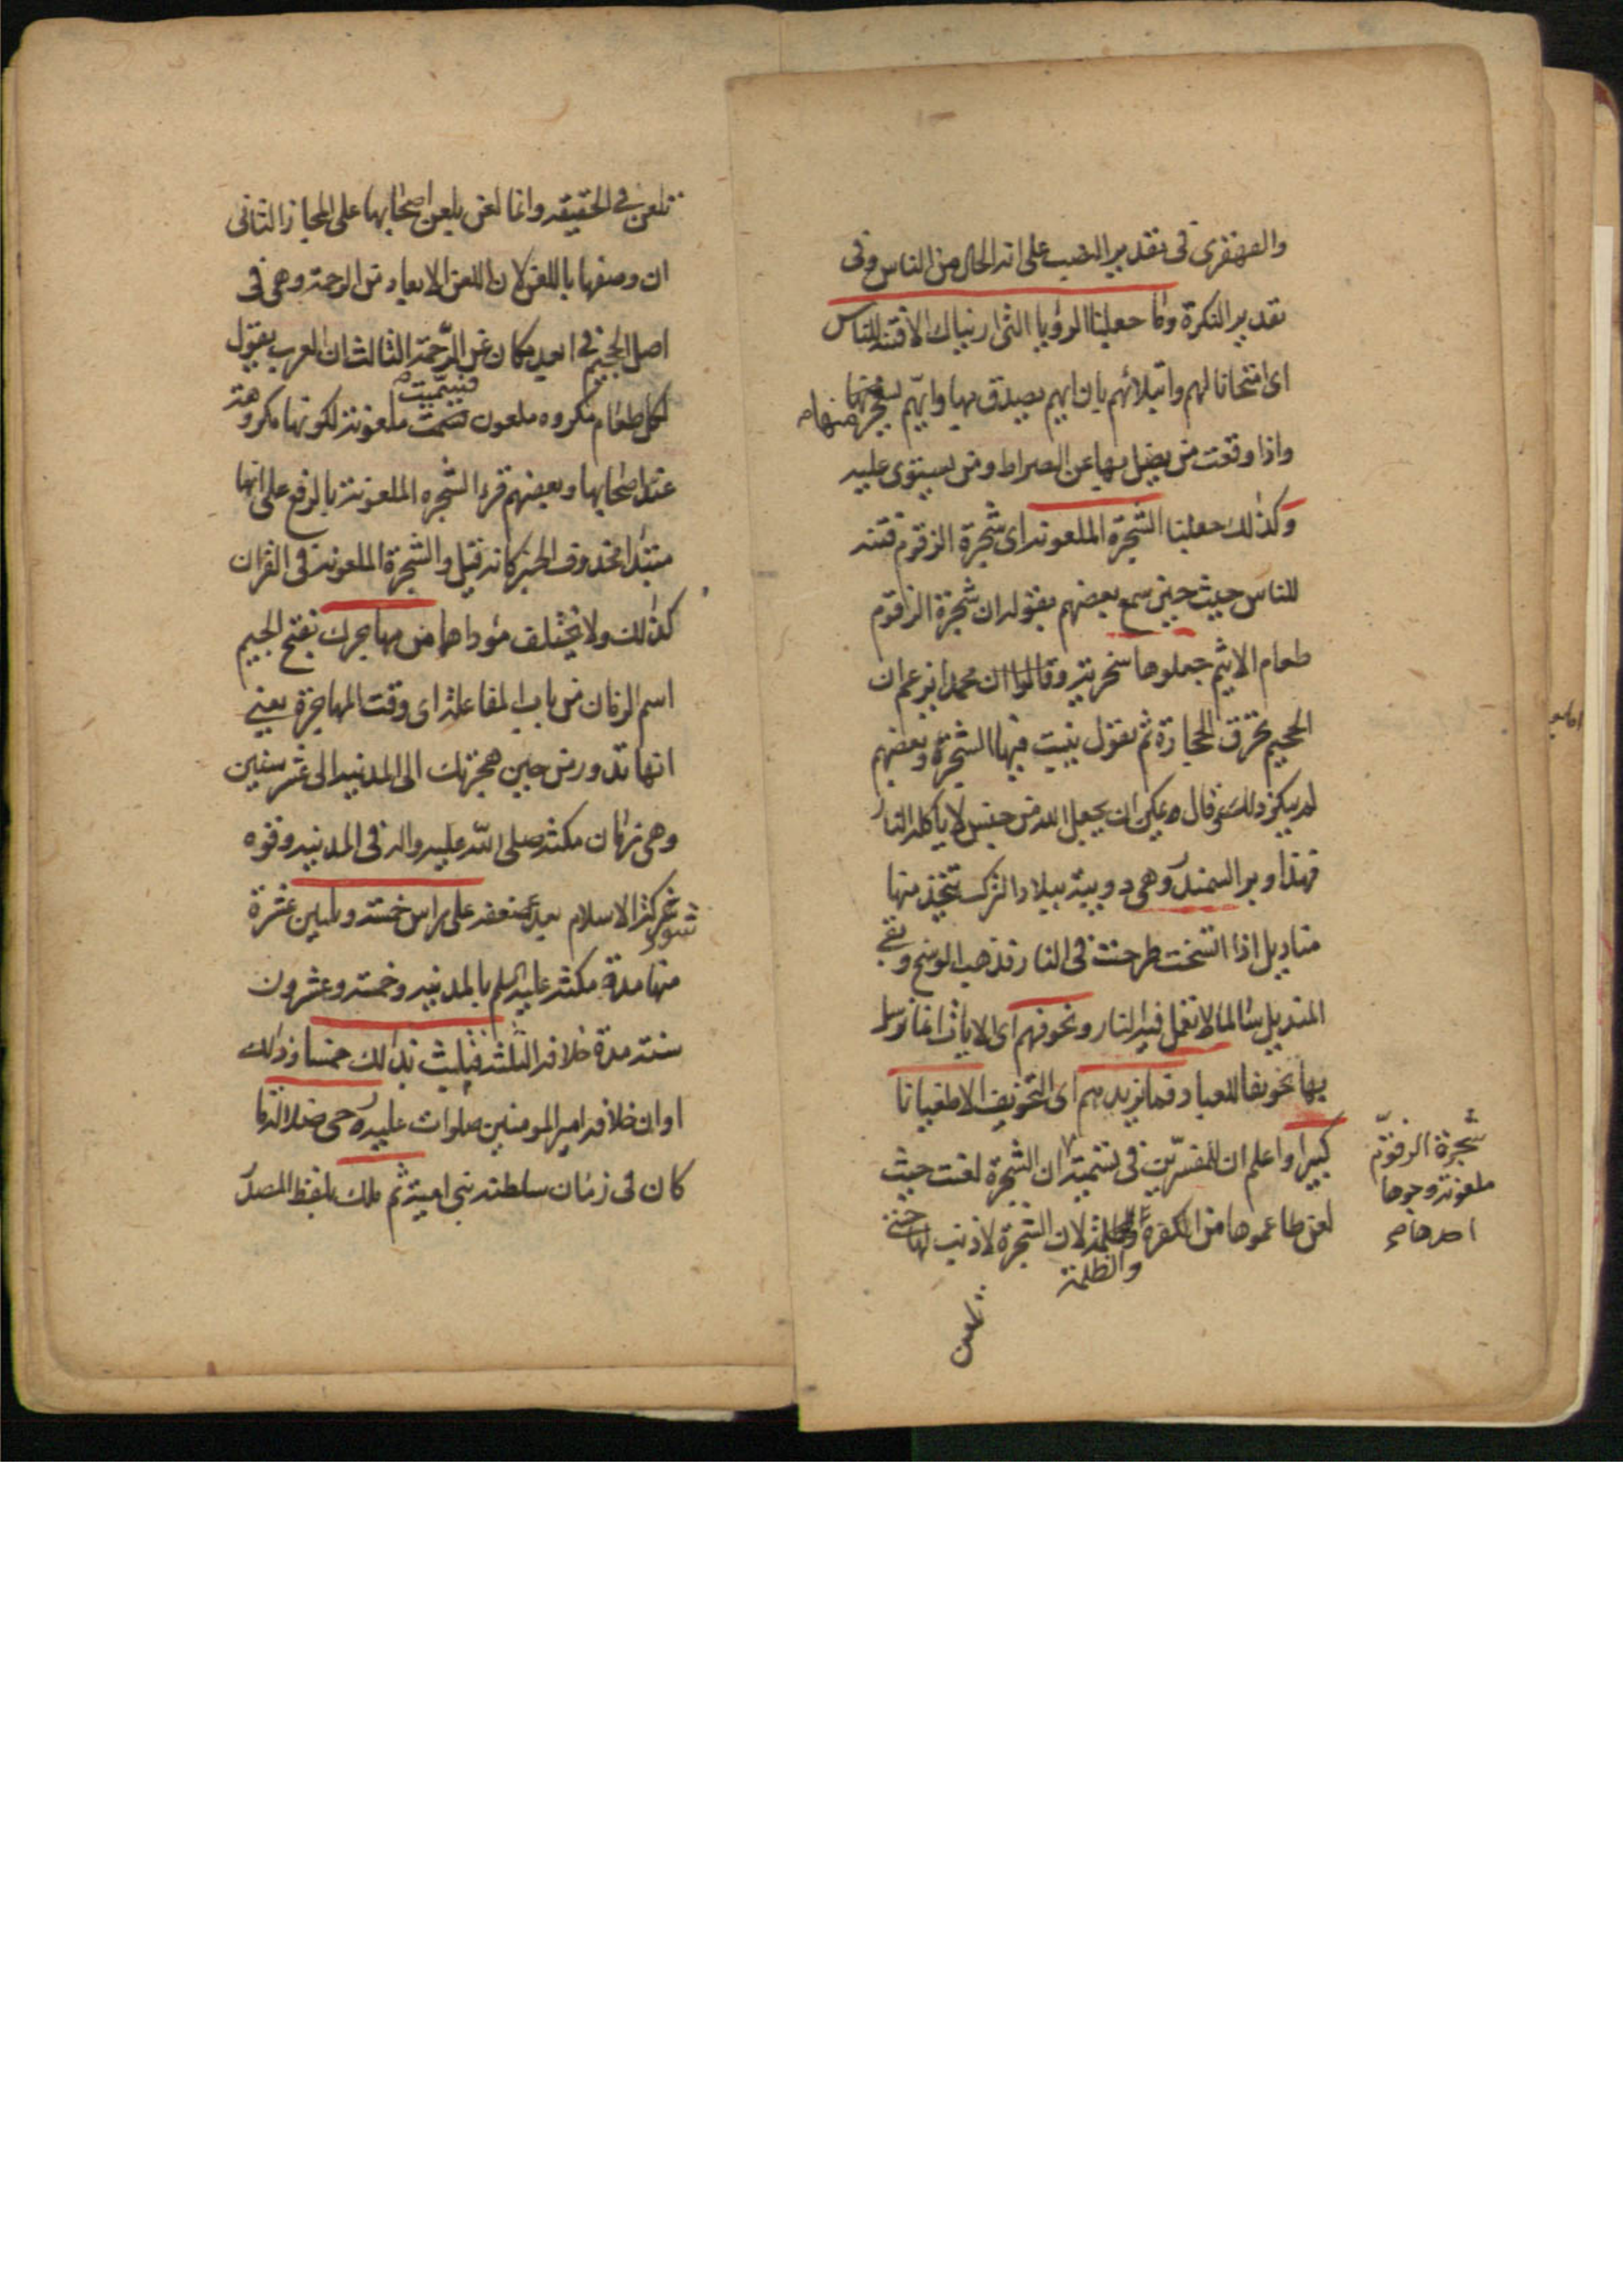 والقهقرى فى تقدير النصب على انه الحال من الناس وفى
تقدير النكرة وما جعلنا الرؤيا التى اريناك الا فتنة للناس
اى امتحانا لهم وابتلائهم بان ايهم يصدق بها وايهم يسخر منها
واذا وقعت من يضل بها عن الصراط ومن يستوى عليه
وكذلك جعلنا الشجرة الملعونة اى شجرة الزقوم فتنه
للناس حيث حين سمع بعضهم بقوله ان شجرة الزقوم
طعام الاثيم جعلوها سخرية وقالوا ان محمدا يزعم ان
الجحيم تحرق الحجارة ثم يقول ينبت فيها الشجرة وبعضهم
لم ينكر ذلك وقال يمكن ان يجعل الله من جنس لا ياكله النار
فهذا وبر السمندر وهى دويبة ببلاد الترك يتخذ منها
مناديل اذا اتسخت طرحت فى النار فذهب الوسخ وبقى
المنديل سالما لا تعمل فيه النار ونخوفهم اى الايات انما نرسل
بها تخويفا للعباد فما يزيدهم اى التخويف الا طغيانا
كبيرا واعلم ان للمفسرين فى تسمية ان الشجرة لعنت حيث
شجرة الزقوم
ملعونة وجوها
احدها صح
لعن طاعموها من الكفرة لان الشجرة لا ذنب لها حتى
والظلمة
تلعن
تلعن فى الحقيقه وانما لعن بلعن اصحابها على المجاز الثانى
ان وصفها باللعن لان اللعن الابعاد من الرحمة وهى فى
اصل الجحيم فى ابعد مكان عن الرحمة الثالث ان العرب يقول
فسميت
لكل طعام مكروه ملعون ملعونة لكونها مكروهة
عند اصحابها وبعضهم قرء الشجره الملعونة بالرفع على انها
مبتدا محذوف الخبر كانه قيل والشجرة الملعونة فى القران
كذلك ولا يختلف مؤداهما من مهاجرك بفتح الجيم
اسم الزمان من باب المفاعلة اى وقت المهاجرة يعنى
انها تدور من حين هجرتك الى المدنيه الى عشر سنين
وهى زمان مكثه صلى الله عليه واله فى المدنيه وقوه
شوكة الاسلام بعد ضعفه على راس خمسة وثلثين عشرة
منها مدة مكثه عليه السلم بالمدنيه وخمسة وعشرون
سنة مدة خلافه الثلثه فتلبث بذلك خمسا وذلك
اوان خلافه امير المومنين صلوات عليه رحى ضلالة ما
كان فى زمان سلطنه بنى امية ثم ملك بلفظ المصدر